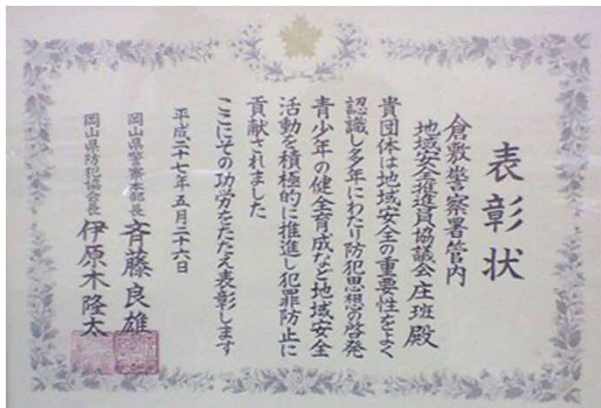 表彰状
倉敷警察署管内
地域安全推進員協議会庄班殿
貴団体は地域安全の重要性をよく
認識し多年にわたり防犯思想の啓発
青少年の健全育成など地域安全
活動を積極的に推進し犯罪防止に
貢献されました
ここにその功労をたたえ表彰します
平成二十七年五月二十六日
岡山県警察本部長 斉藤良雄
岡山県防犯協会長 伊原木隆太